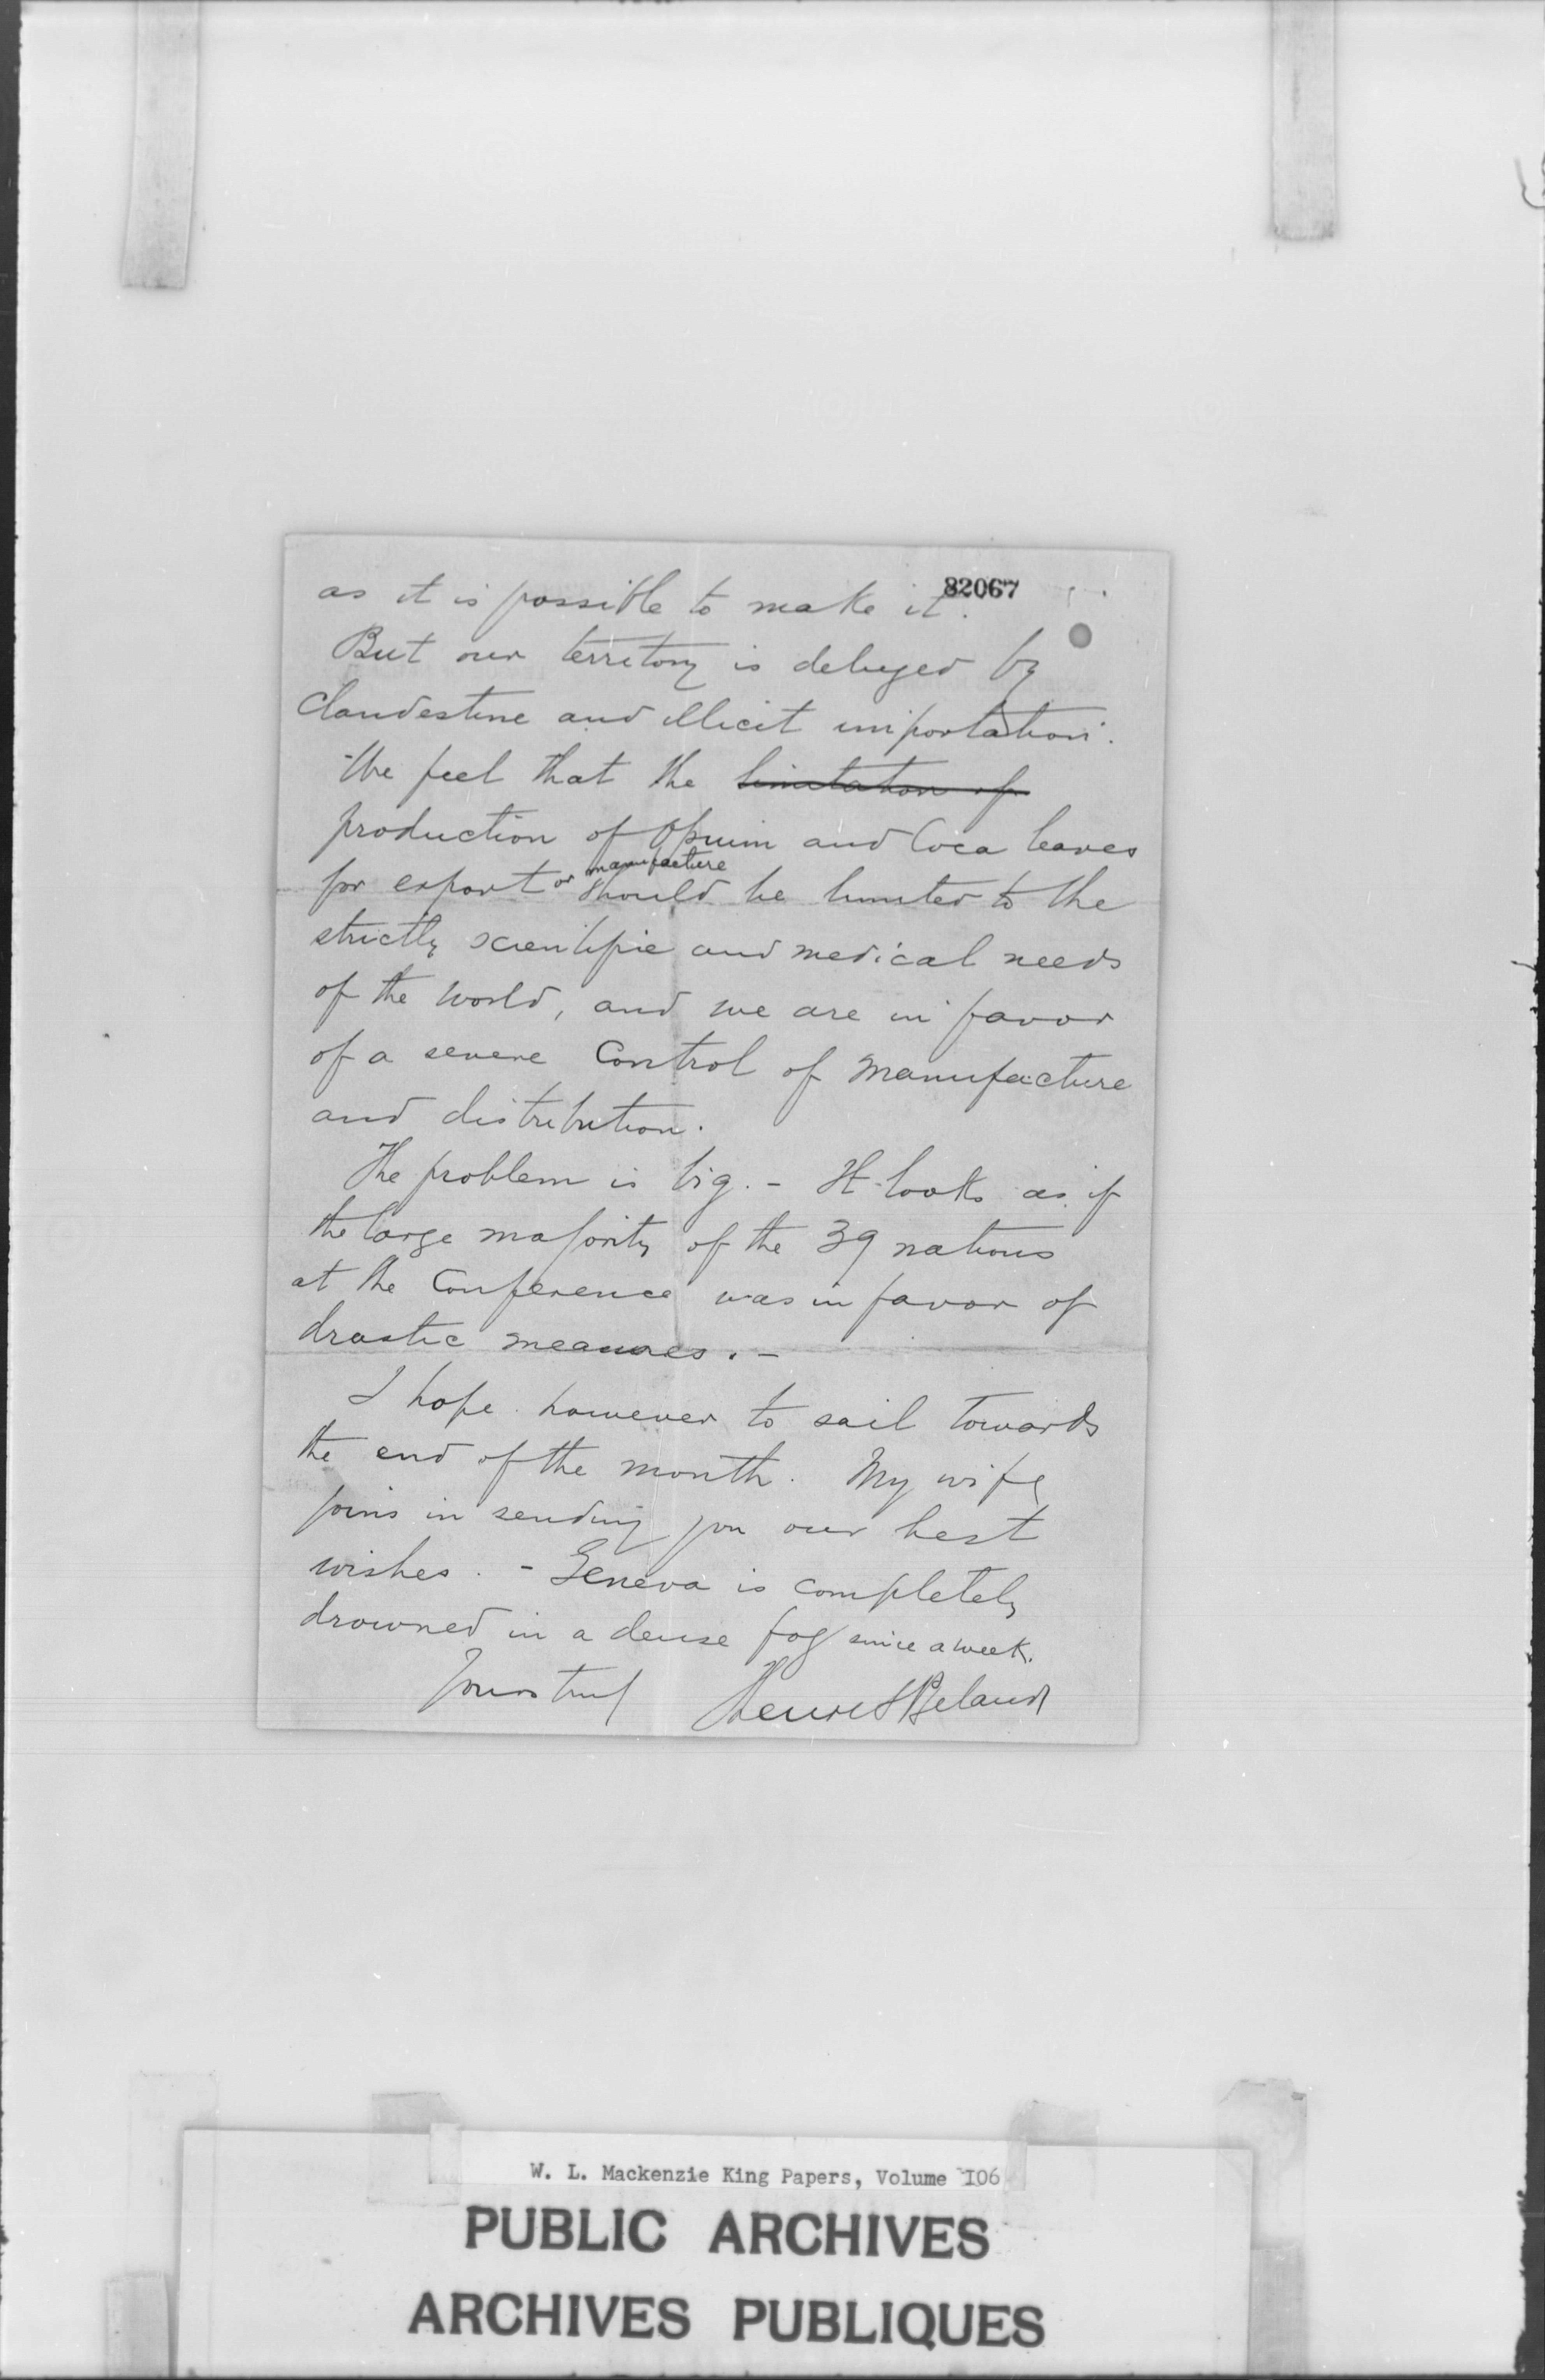 82067
as it is possible to make it.
But our territory is deluged by
clandestine and illicit importation.
We feel that the limitation of
production of Opium and Coca leaves
for export or manufacture should be limited to the
strictly scientific and medical needs
of the world, and we are in favor
of a severe Control of manufacture
and distribution.
The problem is big. - It looks as if
the large majority of the 39 nations
at the Conference was in favor of
drastic measures. -
I hope however to sail towards
the end of the month. My wife
joins in sending you our best
wishes. - Geneva is completely
drowned in a dense fog since a week.
Yours truly Henri S Beland
W. L. Mackenzie King Papers, Volume 106
PUBLIC ARCHIVES
ARCHIVES PUBLIQUES